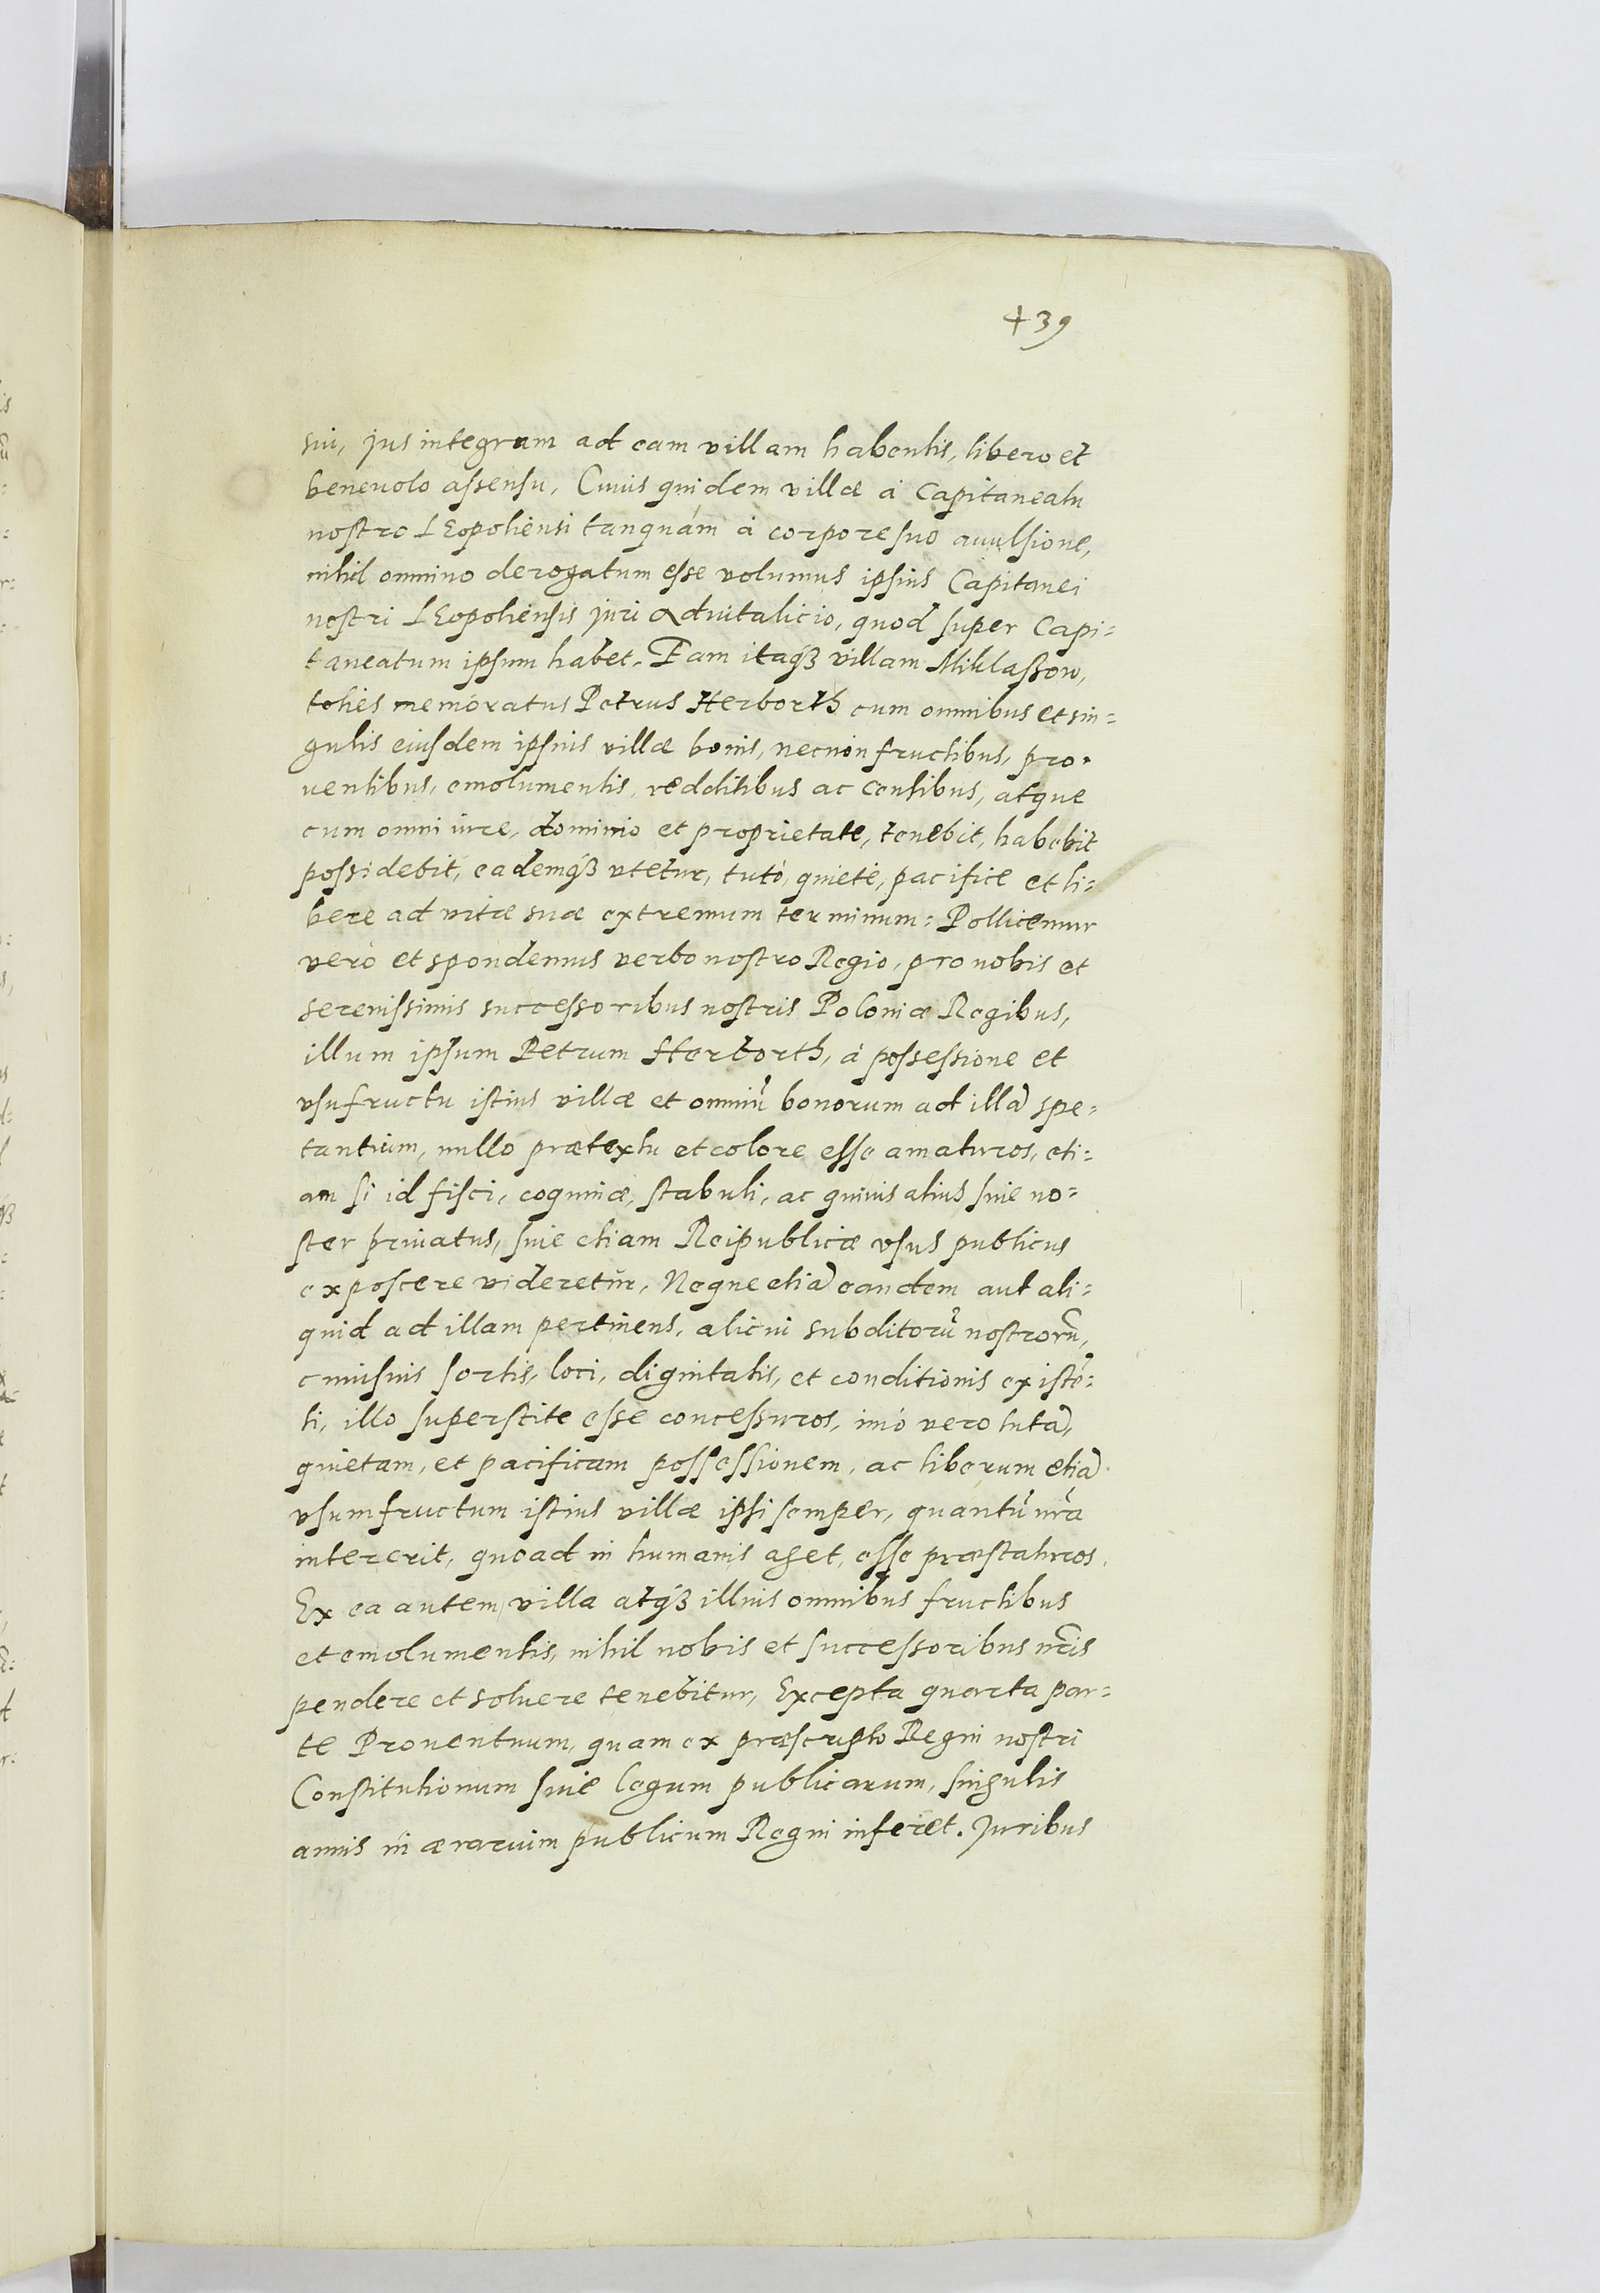 439
sui, jus integrum ad eam villam habentis, libero et
beneuolo assensu, Cuius quidem villæ à Capitaneatu
nostro LEopoliensi tanquàm à corpore suo auulsione,
nihil omnino derogatum esse volumus ipsius Capitanei
nostri LEopoliensis juri Aduitalicio, quod super Capi=
taneatum ipsum habet. Eam itaqȝ villam Miklaszow,
toties memoratus Petrus Herborth cum omnibus et sin=
gulis eiusdem ipsius villæ bonis, necnon fructibus, pro=
uentibus, emolumentis, redditibus ac censibus, atque
cum omni iure, dominio et proprietate, tenebit, habebit
possidebit, eademqȝ vtetur, tutò, quietè, pacifice et li=
bere ad vitæ suæ extremum terminum: Pollicemur
verò et spondemus verbo nostro Regio, pro nobis et
serenissimis successoribus nostris Poloniæ Regibus,
illum ipsum Petrum Herborth, à possessione et
vsufructu istius villæ et omniũ bonorum ad illã spe=
tantium, nullo prætextu et colore esse amaturos, eti=
am si id fisci, coquinæ, stabuli, ac quiuis alius siue no=
ster priuatus, siue etiam Reipublicæ vsus publicus
exposcere videretur, Neque etiã eandem aut ali=
quid ad illam pertinens, alicui subditorũ nostrorũ,
cuiusuis sortis, loci, dignitatis, et conditionis existẽ=
ti, illo superstite esse concessuros, imò vero tutã,
quietam, et pacificam possessionem, ac liberum etiã
vsumfructum istius villæ ipsi semper, quantũ nr̃a
intererit, quoad in humanis aget, esse præstaturos.
Ex ea autem villa atqȝ illius omnibus fructibus
et emolumentis, nihil nobis et successoribus nr̃is
pendere et soluere tenebitur, Excepta quarta par=
te Prouentuum, quam ex præscripto Regni nostri
Constitutionum siue legum publicarum, singulis
annis in ærarium publicum Regni inferet. Juribus